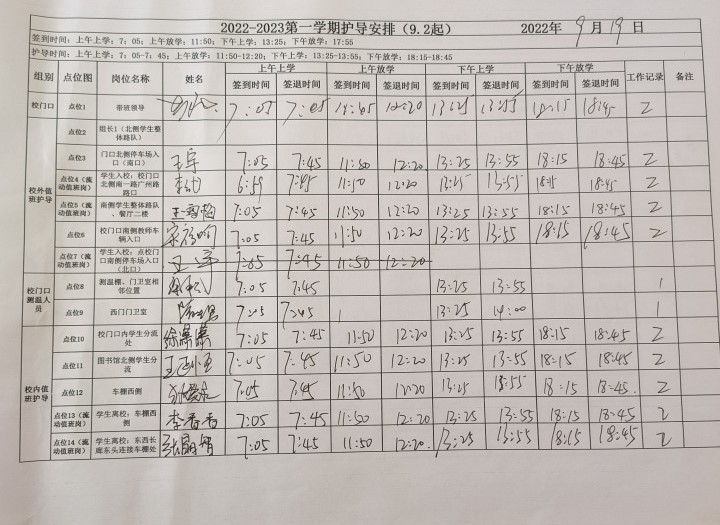 2022-2023第一学期护导安排（9.2起） 2022年 9月 19日
签到时间：上午上学：7：05；上午放学：11:50；下午上学：13:25；下午放学：17:55
护导时间：上午上学：7：05-7：45；上午放学：11:50-12:20；下午上学：13:25-13:55；下午放学：18:15-18:45
组别 点位图 岗位名称 姓名 上午上学 上午放学 下午上学 下午放学 工作记录 备注
签到时间 签退时间 签到时间 签退时间 签到时间 签退时间 签到时间 签退时间
校门口 点位1 带班领导 7:05 7:45 12:20 13:25 13:55 18:15 18:45 2
校外值班护导
点位2 组长1（北侧学生整体路队）
点位3 门口北侧停车场入口（南口） 王宇 7:05 7:45 11:50 12:20 13:25 13:55 18:15 18:45 2
点位4（流动值班岗） 学生入校：校门口北侧南一路广州路路口 6:59 7:45 11:50 12:20 13:25 13:55 18:15 18:45 2
点位5（流动值班岗） 南侧学生整体路队、餐厅二楼 7:05 7:45 11:50 12:20 13:25 13:55 18:15 18:45 2
点位6 校门口南侧教师车辆入口 7:05 7:45 11:50 12:20 13:25 13:55 18:15 18:45 2
点位7（流动值班岗） 学生入校：点校门口南侧停车场入口（北口） 王宇 7:05 7:45 11:50 12:20
校门口测温人员
点位8 测温棚、门卫室相邻位置 7:05 7:45 13:25 13:55 1
点位9 西门门卫室 7:45 13:25 14:00 1
校内值班护导
点位10 校门口内学生分流处 7:05 7:45 11:50 12:20 13:25 13:55 18:15 18:45 2
点位11 图书馆北侧学生分流 7:05 7:45 11:50 12:20 13:25 13:55 18:15 18:45 2
点位12 车棚西侧 7:05 7:45 11:50 12:20 13:25 13:55 18:15 18:45 2
点位13（流动值班岗） 学生离校：车棚西侧 李香香 7:05 7:45 11:50 12:20 13:25 13:55 18:15 18:45 2
点位14（流动值班岗） 学生离校：东西长廊东头连接车棚处 7:05 7:45 11:50 12:20 13:25 13:55 18:15 18:45 2